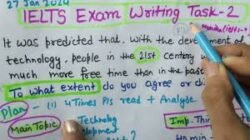 27 Jan 2024
IELTS Exam Writing Task-2
It was predicted that, with the develop
technology, people in the 21st century w
much more free time than in the past
To what extent do you agree or di
Plan - (i) 4 Times P/s read + Analyse
Main Topic Technology
Development
Imp. Thi